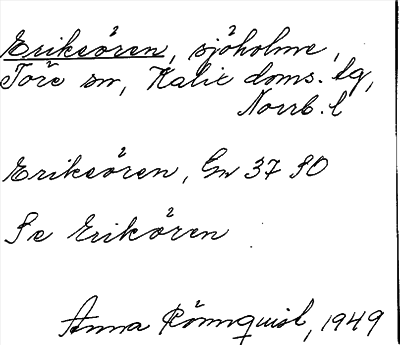 Eriksören, sjöholme,
Töre sn, Kalix doms. lg,
Norrb. l
Eriksören, Gn 37 SO
Se Erikören
Anna Rönnquist, 1949